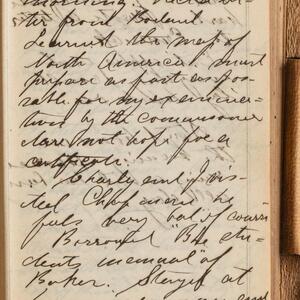 morning.
ter from Boleml
Learned the map of
North America must
prepare as fast as pos-
rable for my examina-
tion by the commisoner
dare not hope for a
certificate.
Charly and I vis-
ited Chapman he
feels very bad of course
Borrowed "The stu-
dents manual" of
Baker. Stayed at